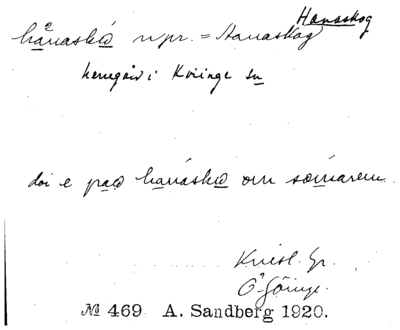 Hanaskog
hånaskú npr. = Hanaskog
herregård i Kviinge sn
doi e paa hanáskú om sómarem.
Krist. Gr.
Ö. Göinge.
№ 469 A. Sandberg 1920.